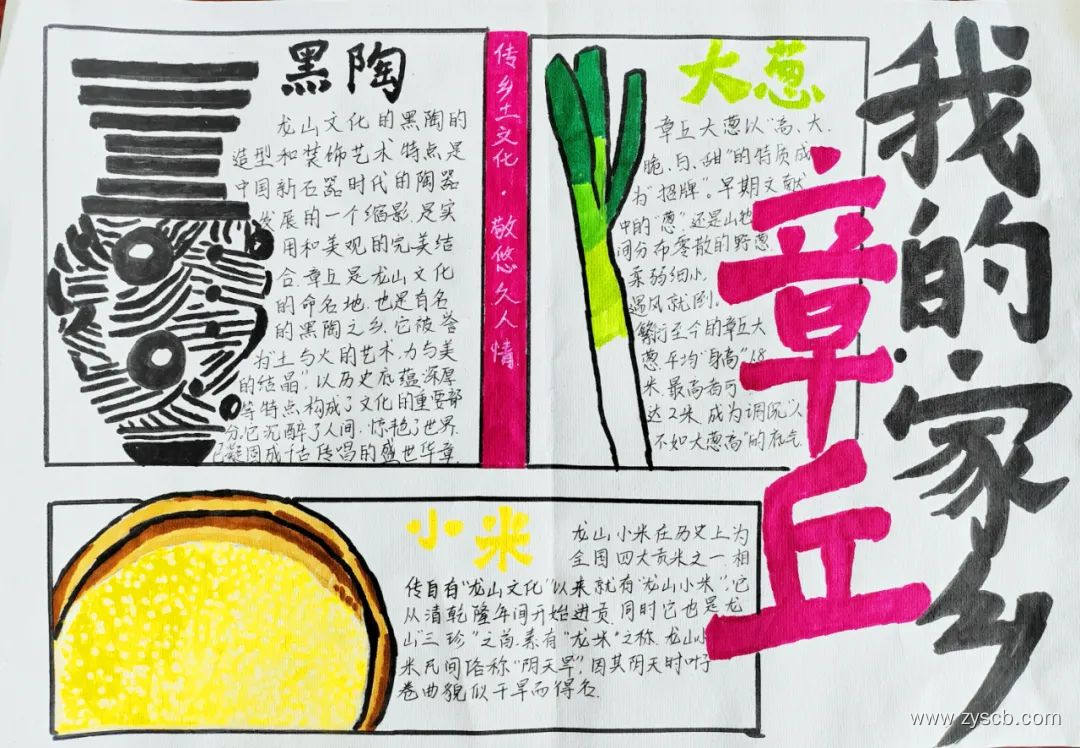 我的家乡
章丘
黑陶
龙山文化的黑陶的
造型和装饰艺术特点是
中国新石器时代的陶器
发展的一个缩影,是实
用和美观的完美结
合.章丘是龙山文化
的命名地.也是有名
的黑陶之乡.它被誉
为"土与火的艺术.力与美
的结晶."以历史底蕴深厚
等特点.构成了文化的重要部
分.它沉醉了人间.惊艳了世界.
已凝固成千古传唱的盛世华章.
传乡土文化·敬悠久人情
大葱
章丘大葱以"高、大.
脆、白、甜"的特质成
为"招牌"。早期文献
中的"葱".还是山地
间分布零散的野葱.
柔弱细小.
遇风就倒。
繁衍至今的章丘大
葱.平均"身高"1.8
米.最高者可
达2米.成为调侃"人
不如大葱高"的底气.
小米
龙山小米在历史上为
全国四大贡米之一.相
传自有"龙山文化"以来就有"龙山小米".它
从清乾隆年间开始进贡.同时它也是"龙
山三珍"之首.素有"龙米"之称.龙山小
米民间俗称"阴天旱".因其阴天时叶子
卷曲貌似干旱而得名.
www.zyscb.com